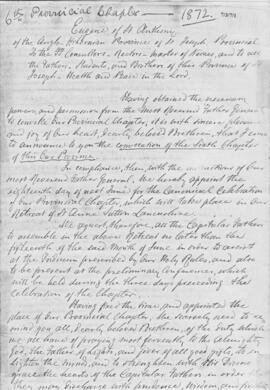 6th Provincial Chapter — 1872.
Eugene of St Anthony
of the Anglo Hibernian Province of St Joseph Provincial
To the FF. Consultors – Rectors – master of Novices, and to all
the Fathers, Students, and Brothers of this Province of
St Joseph – Health and Peace in the Lord.
Having obtained the necessary
powers, and permission from the Most Reverend Father General
to convoke our Provincial Chapter, it is with sincere pleasure
and joy of our heart, dearly beloved Brethren, that I come
to announce to you the convocation of the Sixth Chapter
of this Our Province.
In compliance, then, with the instructions of our
most Reverend Father General, We hereby appoint the
eighteenth day of next June for the Canonical Celebration
of our Provincial Chapter, which will take place in Our
Retreat of St Anne Sutton Lancashire.
We expect, therefore, all the Capitular Fathers
to assemble in the above Retreat no later than the
fifteenth of the said Month of June in order to assist
at the Triduum prescribed by Our Holy Rules, and also
to be present at the preliminary Conferences, which
will be held during the three days preceding the
Celebration of the Chapter.
Having fixed the time and appointed the
place of our Provincial Chapter, We scarcely need to re
mind you all, dearly beloved Brethren, of the duty which
we all have of praying most fervently to the Almighty
God, the Father of lights, and giver of all good gifts, to en
lighten the mind, and to strengthen with His Divine
grace the hearts of the Capitular Fathers in order
they may discharge with prudence, wisdom, and